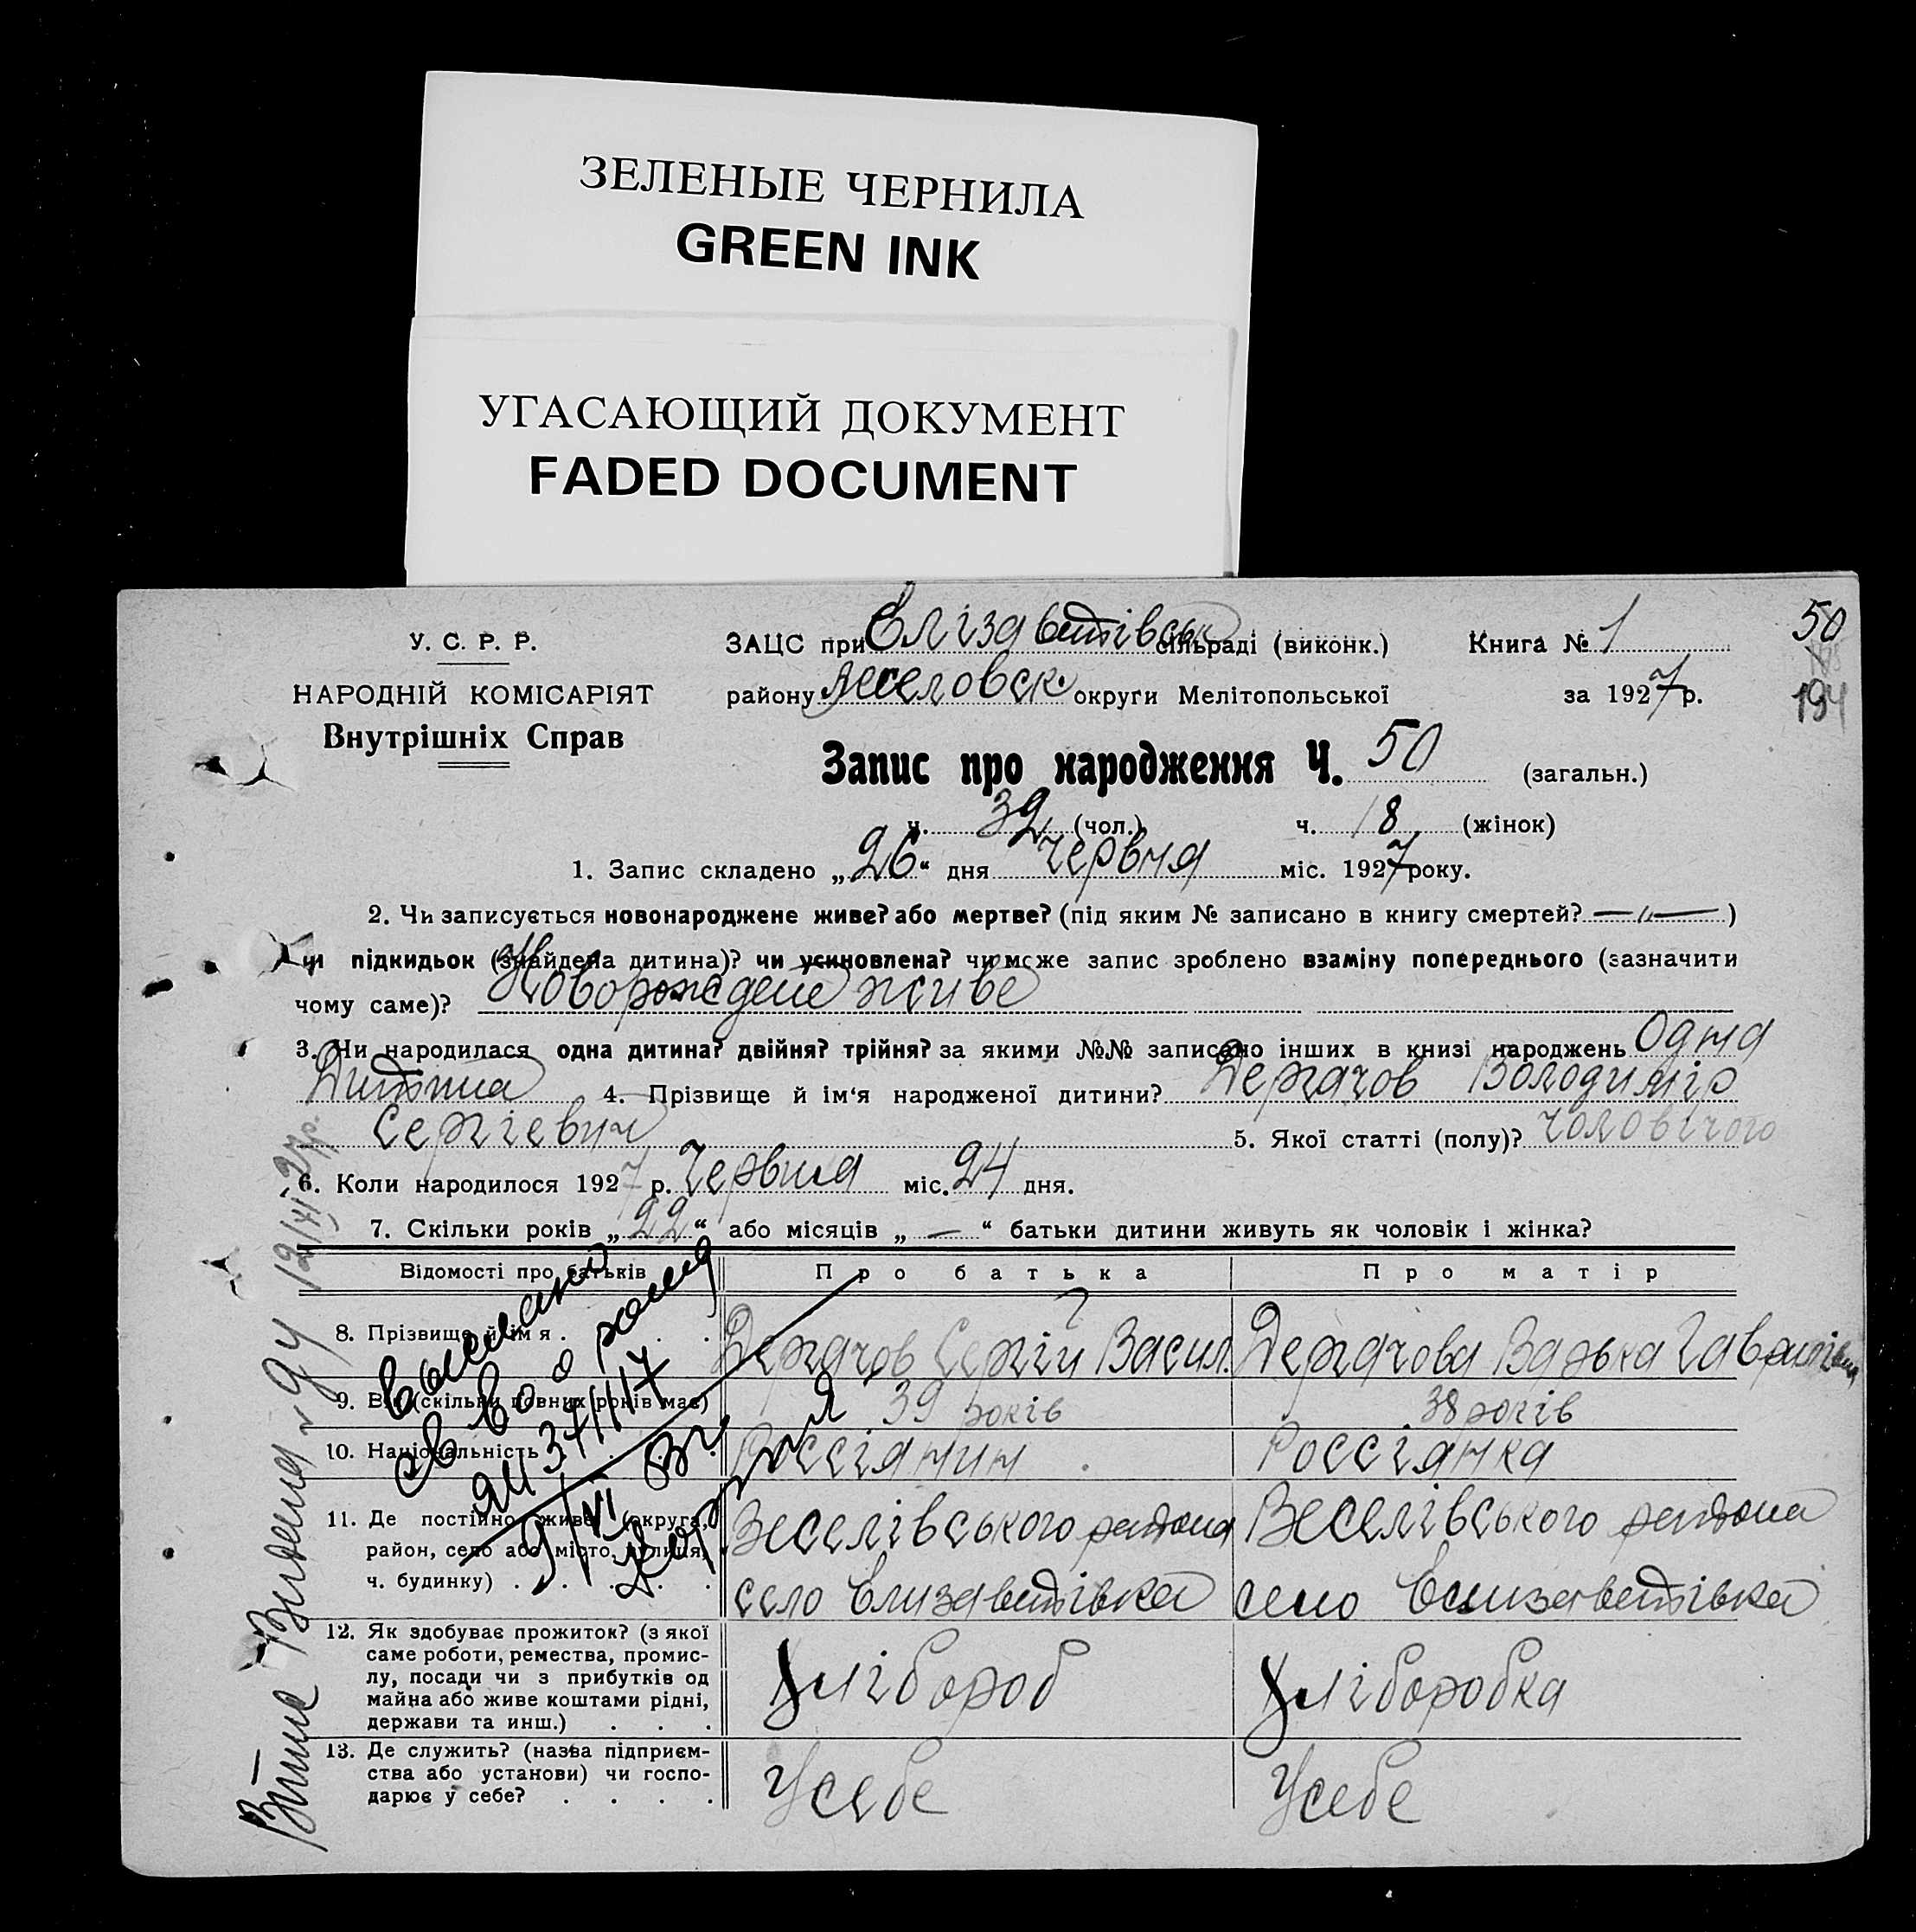 ЗЕЛЕНЫЕ ЧЕРНИЛА
GREEN INK
УГАСАЮЩИЙ ДОКУМЕНТ
FADED DOCUMENT
У. С. Р. Р.
НАРОДНІЙ КОМІСАРІЯТ
Внутрішніх Справ
ЗАЦС при Єлізаветівськ сільраді (виконк.) Книга № 1
50
району Веселовськ. округи Мелітопольської за 1927 р.
194
Запис про народження Ч. 50 (загальн.)
ч. 32 (чол.) ч. 18 (жінок)
1. Запис складено „26“ дня Червня міс. 1927 року.
2. Чи записується новонароджене живе? або мертве? (під яким № записано в книгу смертей? —„— )
чи підкидьок (знайдена дитина)? чи усиновлена? чи може запис зроблено взаміну попереднього (зазначити
чому саме)? Новорождене живе
3. Чи народилася одна дитина? двійня? трійня? за якими №№ записано інших в книзі народжень Одна
Дитина 4. Прізвище й ім‘я народженої дитини? Дергачов Володимір
Сергіевич 5. Якої статті (полу)? чоловічого
6. Коли народилося 1927 р. Червня міс. 24 дня.
7. Скільки років „22“ або місяців „ — “ батьки дитини живуть як чоловік і жінка?
Відомості про батьків Про батька Про матір
8. Прізвище й ім‘я . . . Дергачов Сергій Васил. Дергачова Варька
9. Вік (скільки повних років має) 39 років 38 років
10. Національність Россіянин . Россіянка
11. Де постійно живе (округа, район, село або місто, вулиця, ч. будинку) . . . . .
Веселівського района Веселівського района
село Елизаветівка село Елизаветівка
12. Як здобуває прожиток? (з якої
саме роботи, ремества, промис-
лу, посади чи з прибутків од
майна або живе коштами рідні,
держави та инш.) . . .
Хлібороб Хліборобка
13. Де служить? (назва підприєм-
ства або установи) чи госпо-
дарює у себе? . . . .
У себе У себе